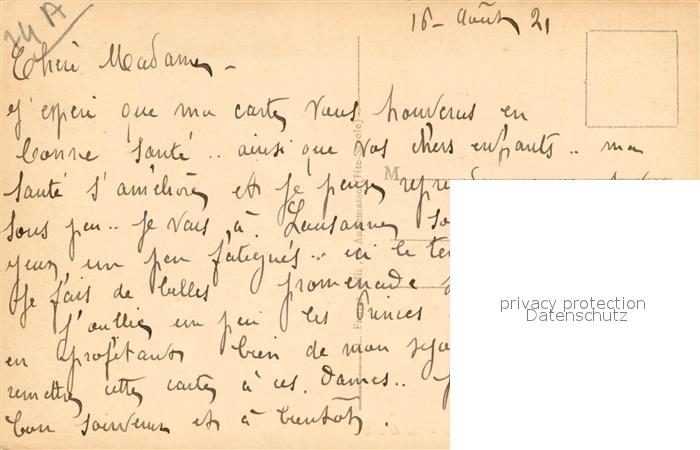 24 A
16 - Août 21
Chère Madame -
J'espère que ma carte vous trouvera en
bonne santé .. ainsi que vos chers enfants .. ma
M
santé s'améliore et je pense
sous peu .. je vais à Lausanne
yeux un peu fatigués .. ici le
Je fais de belles promenade
J'oublie un peu les Princes
en profitant bien de mon
remettre cette carte à ces Dames ..
bon souvenir et à bientôt .
privacy protection
Datenschutz